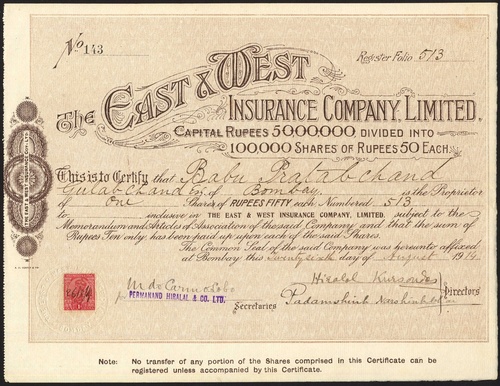 No 143
Register Folio 513
The EAST & WEST
INSURANCE COMPANY, LIMITED.
CAPITAL RUPEES 50,00,000 DIVIDED INTO
100,000 SHARES OF RUPEES 50 EACH.
This is to Certify that Babu Pratabchand
Gulabchand Esq. of Bombay. is the Proprietor
of One Shares of RUPEES FIFTY each Numbered 513
to inclusive in THE EAST & WEST INSURANCE COMPANY, LIMITED, subject to the
Memorandum and Articles of Association of the said Company and that the sum of
Rupees Ten only has been paid up upon each of the said Shares.
The Common Seal of the said Company was hereunto affixed
at Bombay this Twenty sixth day of August 1914.
THE EAST & WEST INSURANCE CO. LTD.
Hiralal
for PERMANAND HIRALAL & CO. LTD.
Secretaries
Padamshi
Directors
Note: No transfer of any portion of the Shares comprised in this Certificate can be
registered unless accompanied by this Certificate.